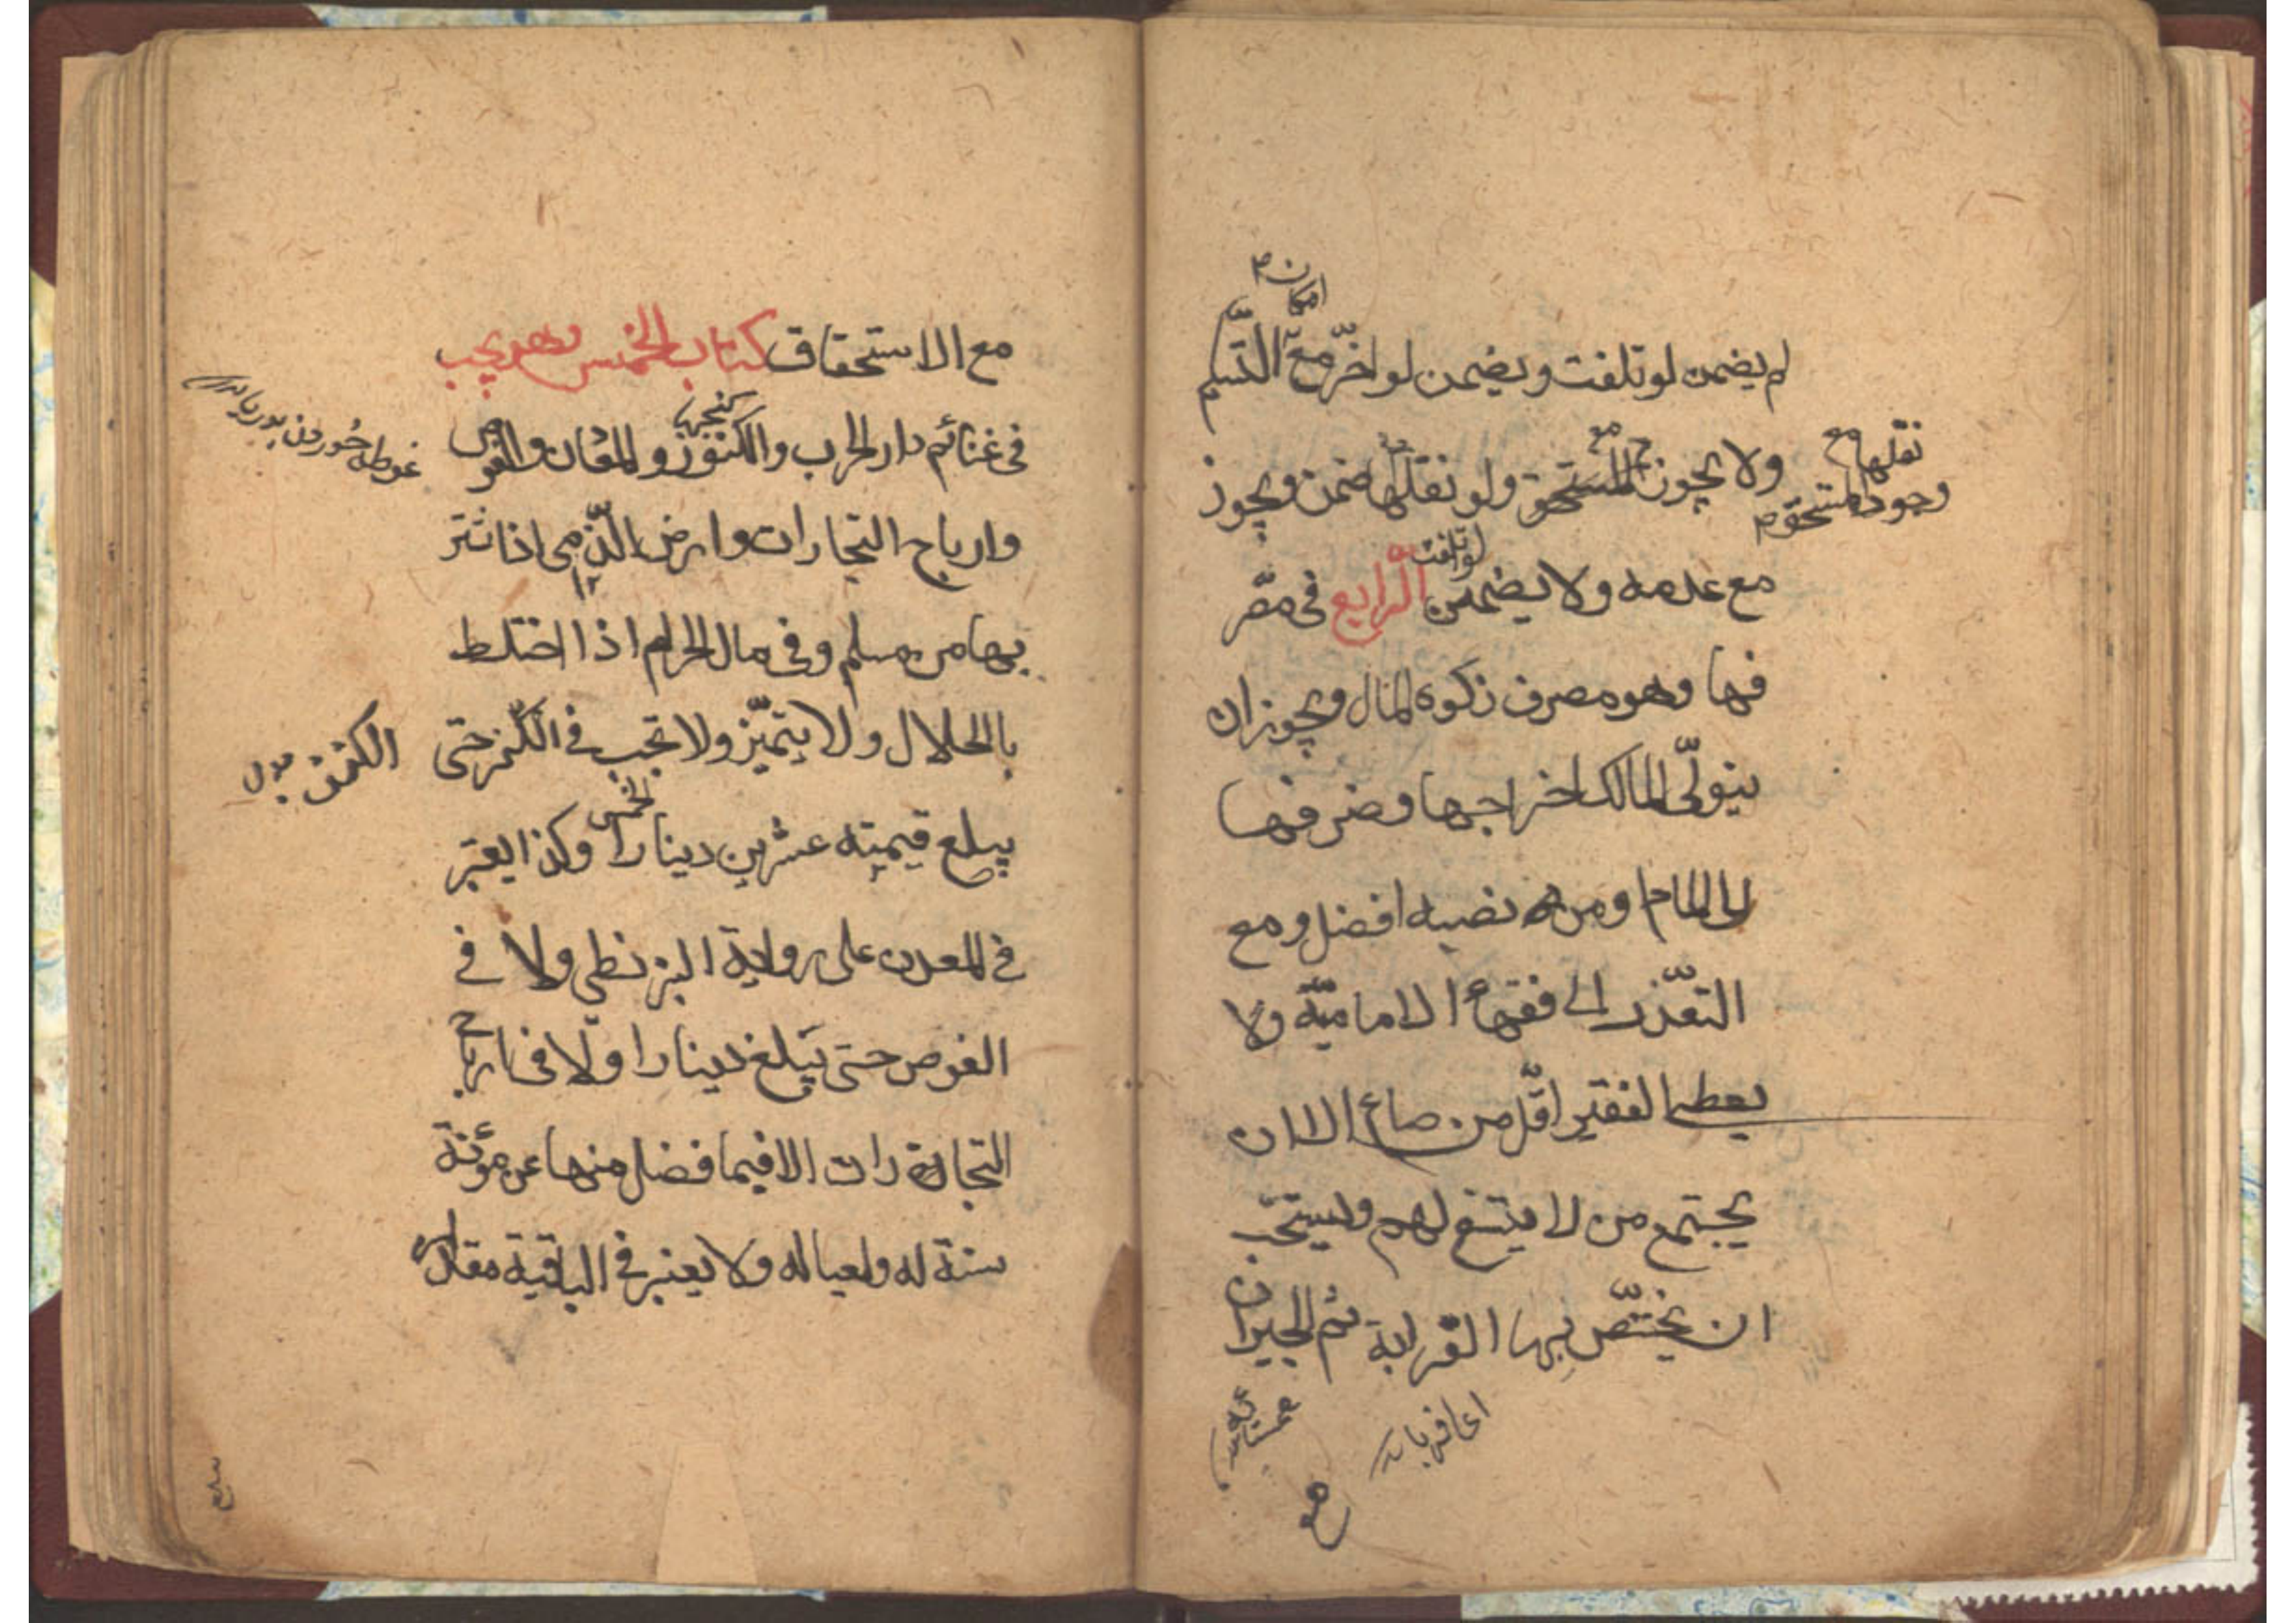 امكان
لم يضمن لو تلفت ويضمن لو اخّر مع التّسليم
نقلها مع
وجود المستحق
ولا يجوز المستحق ولو نقلها ضمن ويجوز
لو تلفت
مع عدمه ولا يضمن الرّابع فى مصر
فها وهو مصرف زكوة المال ويجوز ان
يتولّى المالك اخراجها وصرفها
الى الامام ومن نصبه افضل ومع
التعذّر الى فقهاء الاماميّة ولا
يعطى الفقير اقلّ من صاع الا ان
يجتمع من لا يتسع لهم ويستحبّ
ان يختصّ بها القرابة ثم الجيران
مع الاستحقاق كتاب الخمس وهو يجب
فى غنائم دار الحرب والكنوز والمعادن والغوص
غوطه خوردن بدريا
وارباح التجارات وارض الذّمى اذا اشتر
يها من مسلم وفى مال الحرام اذا اختلط
بالحلال ولا يتميّز ولا تجب فى الكنز حتى
الخمس
يبلغ قيمته عشرين دينارا وكذا يعتبر
فى المعدن على رواية البزنطى ولا فى
الغوص حتى تبلغ دينارا ولا فى ارباح
التجارات الا فيما فضل منها عن مؤنة
سنة له ولعياله ولا يعتبر فى الباقية مقدار